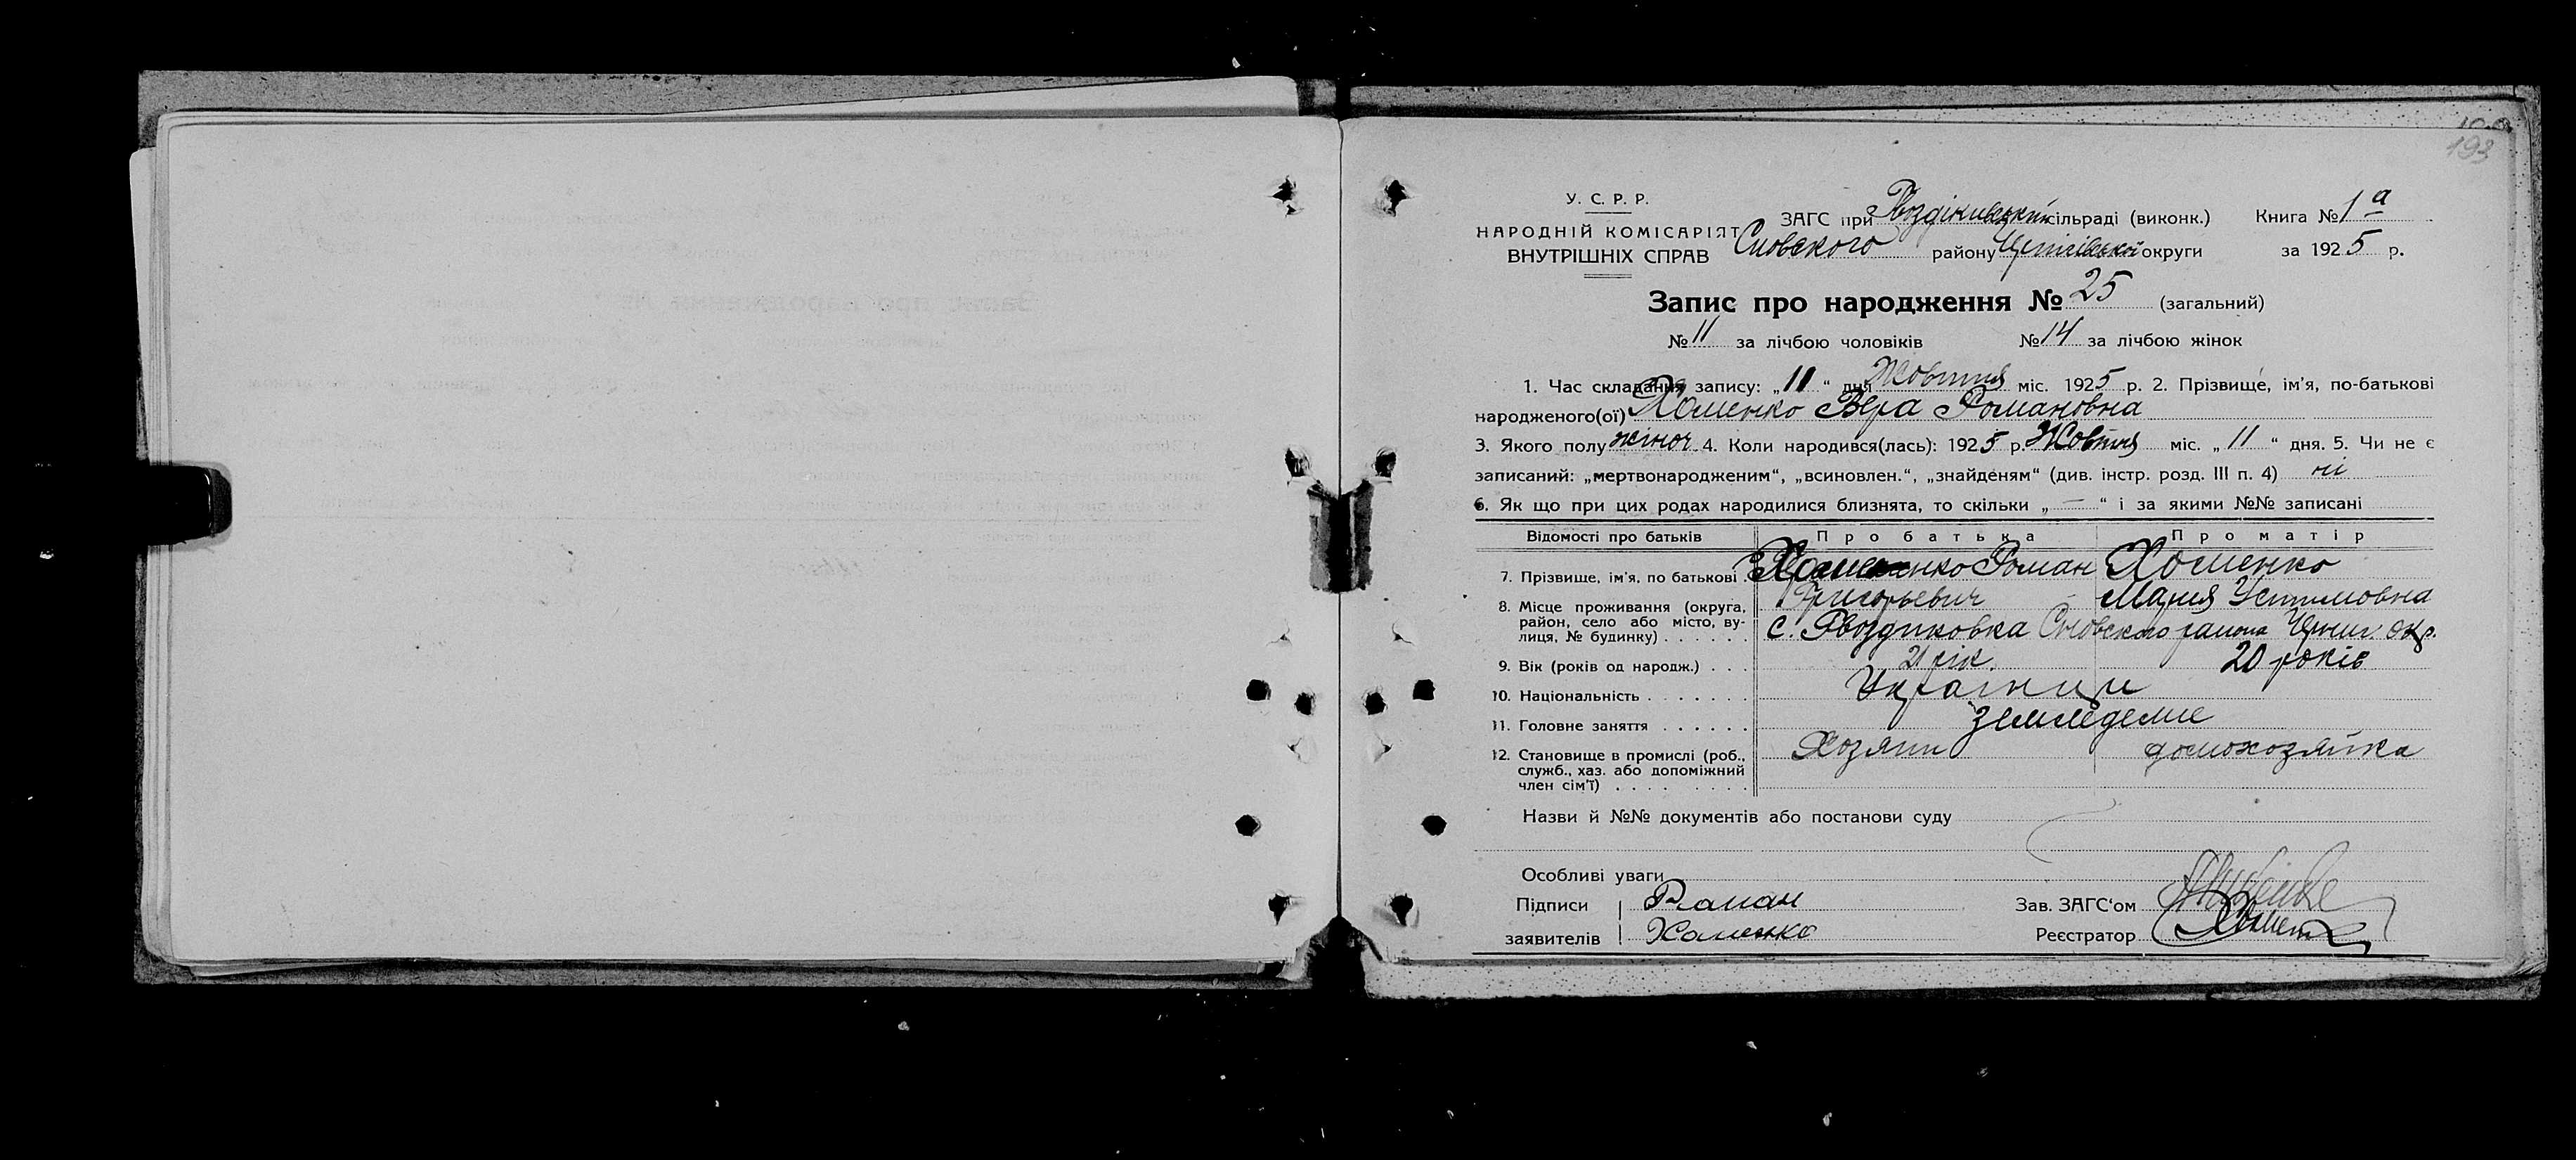 193
У. С. Р. Р.
НАРОДНІЙ КОМІСАРІЯТ
ВНУТРІШНІХ СПРАВ
ЗАГС при Гвоздіківській сільраді (виконк.)
Сновского району Чернігівської округи
Книга № 1а
за 1925 р.
Запис про народження № 25 (загальний)
№ 11 за лічбою чоловіків № 14 за лічбою жінок
1. Час складання запису: „11“ дня Жовтня міс. 1925 р. 2. Прізвище, ім'я, по-батькові
народженого(ої) Хоменко Вера Романовна
3. Якого полу жіноч. 4. Коли народився(лась): 1925 р. Жовтня міс. „11“ дня. 5. Чи не є
записаний: „мертвонародженим“, „всиновлен.“, „знайденям“ (див. інстр. розд. III п. 4) ні
6. Як що при цих родах народилися близнята, то скільки „—“ і за якими №№ записані
Відомості про батьків Про батька Про матір
7. Прізвище, ім'я, по батькові Хоменко Роман Хоменко
Григорьевич Мария Устимовна
8. Місце проживання (округа,
район, село або місто, ву-
лиця, № будинку) с. Гвоздиковка Сновского района Черниг. окр.
9. Вік (років од народж.) 21 рік 20 років
10. Національність Українци
11. Головне заняття земледелие
12. Становище в промислі (роб.,
служб., хаз. або допоміжний
член сім'ї) Хозяин домохозяйка
Назви й №№ документів або постанови суду
Особливі уваги
Підписи Раман Зав. ЗАГС'ом
заявителів Хаменко Реєстратор